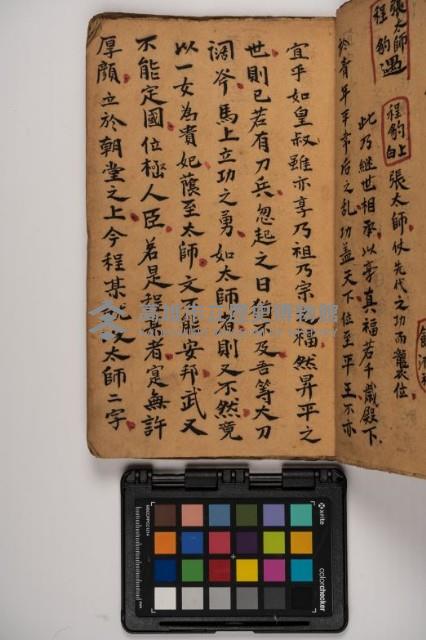 張太師
程豹遇
終青年平帝后之乱功蓋天下位至平王不亦
此乃継世相承以享真福若千歲殿下
程豹上白
張太師仗先代之功而襲衣位
宜乎如皇叔雖亦享乃祖乃宗之福然昇平之
世則已若有刀兵忽起之日猶不及吾等大刀
闊斧馬上立功之勇如太師者則又不然竟
以一女為貴妃蔭至太師文不能安邦武又
不能定國位極人臣若是程某者寔無許
厚顔立於朝堂之上今程某說及太師二字
高雄市立歷史博物館
x-rite
colorchecker